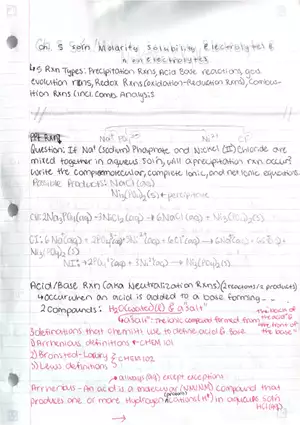 Ch. 5 Soln/Molarity Solubility, Electrolytes &
nonelectrolytes
↳5 Rxn Types: Precipitation Rxns, Acid Base reactions, gas
evolution rxns, Redox Rxns (oxidation-Reduction Rxns), Combus-
tion Rxns (incl. Comb. Analysis)
PPT Rxns
Na⁺ PO₄³⁻ Ni²⁺ Cl⁻
Question: If Na⁺ (sodium) Phosphate and Nickel (II) Chloride are
mixed together in aqueous soln, will a precipitation rxn occur?
Write the compmolecular, complete ionic, and net ionic equations.
Possible Products: NaCl (aq)
Ni₃(PO₄)₂(s) ← precipitate
CM: 2Na₃PO₄(aq) + 3NiCl₂(aq) → 6NaCl(aq) + Ni₃(PO₄)₂(s)
CI: 6Na⁺(aq) + 2PO₄³⁻(aq) + 3Ni²⁺(aq) + 6Cl⁻(aq) → 6Na⁺(aq) + 6Cl⁻(aq) +
Ni₃(PO₄)₂(s)
NI: +2PO₄³⁻(aq) + 3Ni²⁺(aq) → Ni₃(PO₄)₂(s)
Acid/Base Rxn (aka Neutralization Rxns) (2 reactants/2 products)
↳occur when an acid is added to a base forming...
2 compounds: H₂O (water)(l) & a "salt"
↳a "salt": the ionic compound formed from the back of the acid & the front of the base
3 definitions that chemists use to define acid & base
1) Arrhenius definitions ← CHEM 101
2) Bronsted-Lowry
3) Lewis definitions
} CHEM 102
→ always (aq) except exceptions
Arrhenius - An acid is a molecular (NM/NM) compound that
produces one or more Hydrogen cations (H⁺) in aqueous soln
(proton)
HCl(aq)
→